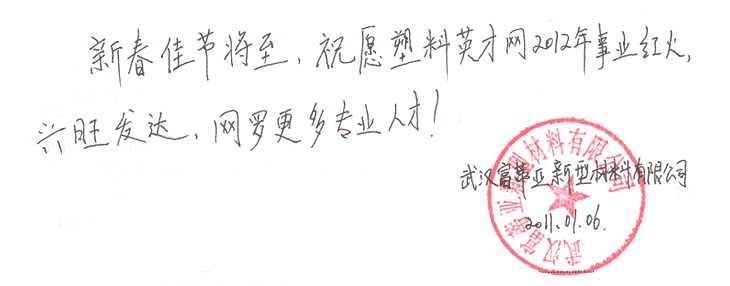 新春佳节将至，祝愿塑料英才网2012年事业红火，
兴旺发达，网罗更多专业人才！
武汉富蒂亚新型材料有限公司
2011.01.06.
武汉富蒂亚新型材料有限公司